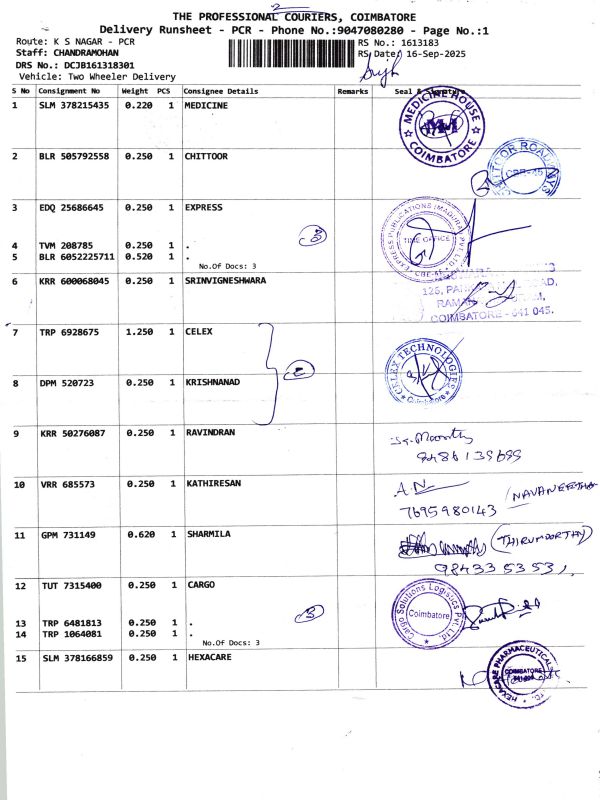 2
THE PROFESSIONAL COURIERS, COIMBATORE
Delivery Runsheet - PCR - Phone No.:9047080280 - Page No.:1
Route: K S NAGAR - PCR
RS No.: 1613183
Staff: CHANDRAMOHAN
RS Date: 16-Sep-2025
DRS No.: DCJB161318301
Vehicle: Two Wheeler Delivery
S No Consignment No Weight PCS Consignee Details Remarks Seal & Signature
1 SLM 378215435 0.220 1 MEDICINE
MEDICINE HOUSE COIMBATORE
2 BLR 505792558 0.250 1 CHITTOOR
3 EDQ 25686645 0.250 1 EXPRESS
EXPRESS PUBLICATIONS (MADURAI) PVT LTD
TIME OFFICE
4 TVM 208785 0.250 1 .
5 BLR 6052225711 0.520 1 .
No.Of Docs: 3
6 KRR 600068045 0.250 1 SRINVIGNESHWARA
COIMBATORE - 641 045.
7 TRP 6928675 1.250 1 CELEX
CELEX TECHNOLOGIES Coimbatore
2
8 DPM 520723 0.250 1 KRISHNANAD
9 KRR 50276087 0.250 1 RAVINDRAN
10 VRR 685573 0.250 1 KATHIRESAN
A.N
7695980143
11 GPM 731149 0.620 1 SHARMILA
(THIRUMOORTHY)
9843353531,
12 TUT 7315400 0.250 1 CARGO
Cargo Solutions Logistics Pvt. Ltd.
Coimbatore
3
13 TRP 6481813 0.250 1 .
14 TRP 1064081 0.250 1 .
No.Of Docs: 3
15 SLM 378166859 0.250 1 HEXACARE
HEXACARE PHARMACEUTICAL
COIMBATORE